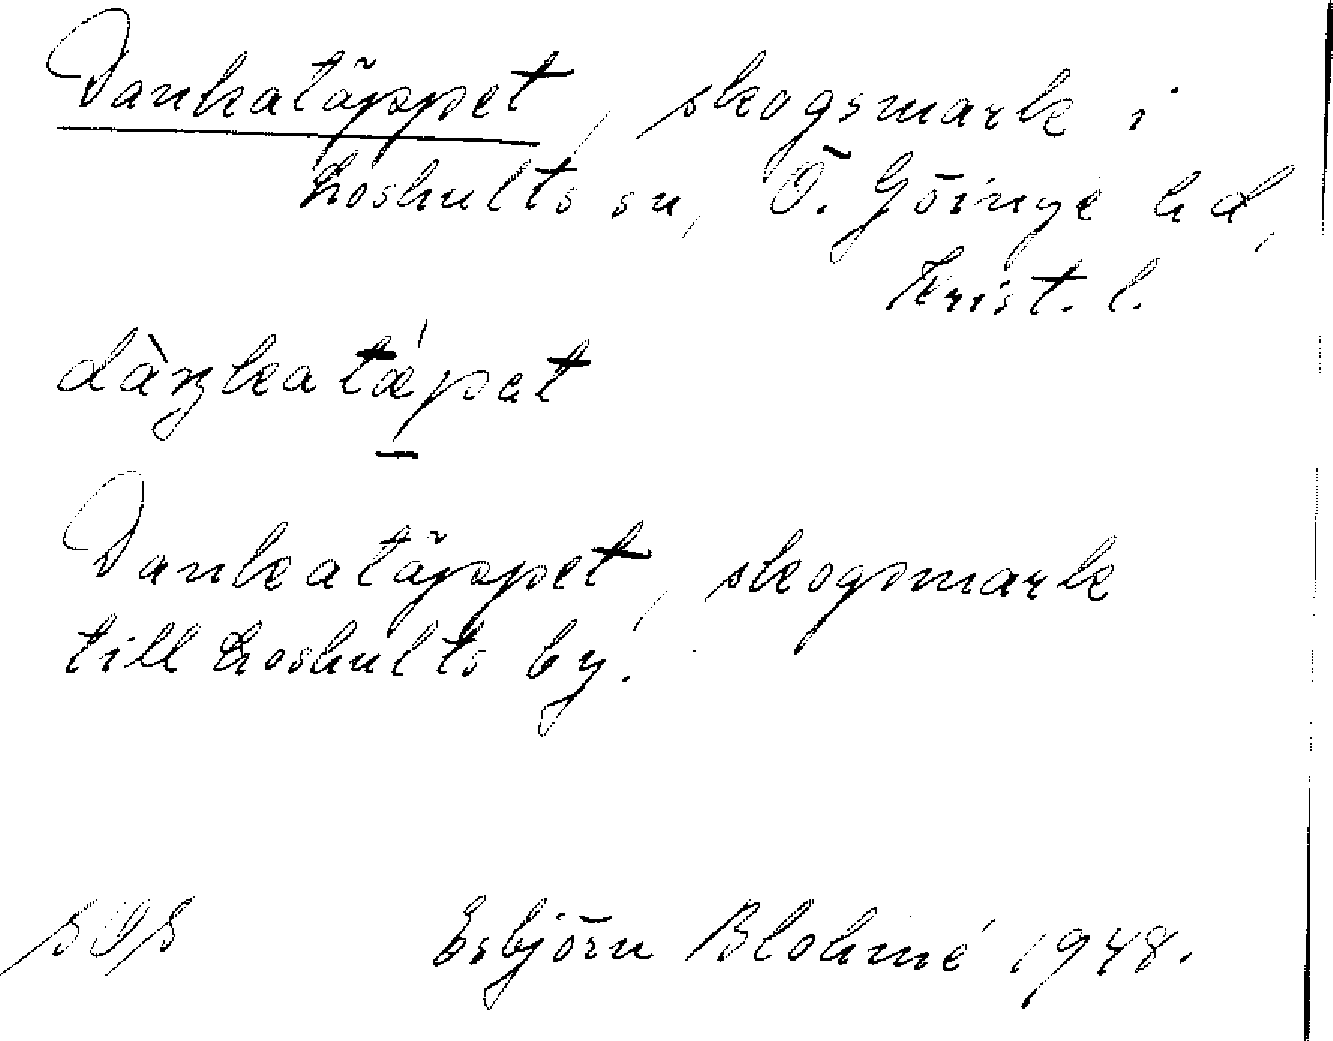 Dankatäppet, skogsmark i
Loshults sn, Ö. Göinge hd,
Krist. l.
dàŋkatǽpat
Dankatäppet, skogsmark
till Loshults by.
Esbjörn Blohmé 1948.